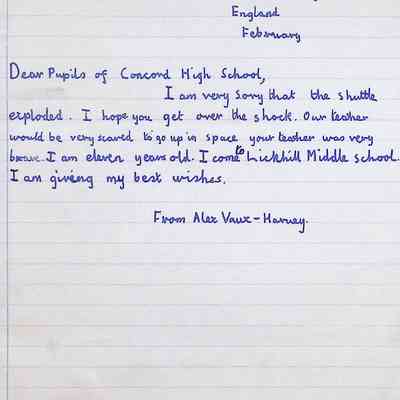 England
February
Dear Pupils of Concord High School,
I am very sorry that the shuttle
exploded. I hope you get over the shock. Our teacher
would be very scared to go up in space your teacher was very
brave. I am eleven years old. I come to Lickhill Middle school.
I am giving my best wishes.
From Alex Vaux-Harvey.